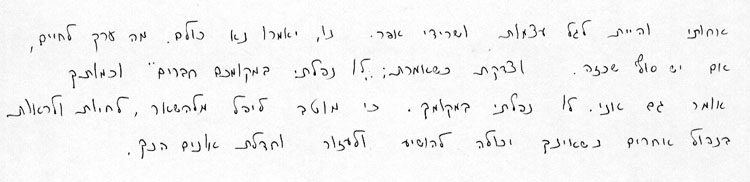 אחותי והיית לגל עצמות ושרידי אפר. נו, יאמרו נא כולם. מה ערך לחיים,
אם יש סוף שכזה. וצדקת כשאמרת: "לו נפלתי במקומכם חברים" וכמותך
אומר גם אני. לו נפלתי במקומך. כי מוטב ליפול מלהשאר, לחיות ולראות
בנפול אחרים כשאינך יכולה להושיע ולעזור וחדלת אונים הנך.